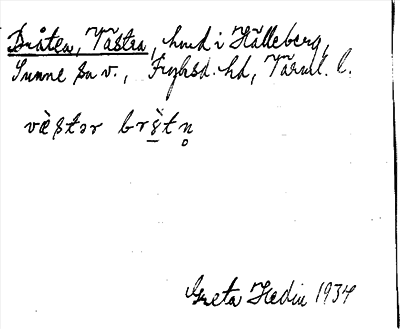 Bråten, Västra, hmd i Hälleberg,
Sunne sn v., Fryksd. hd, Värml. l.
væ̀stər brs̱̀tn̥
Greta Hedin 1934